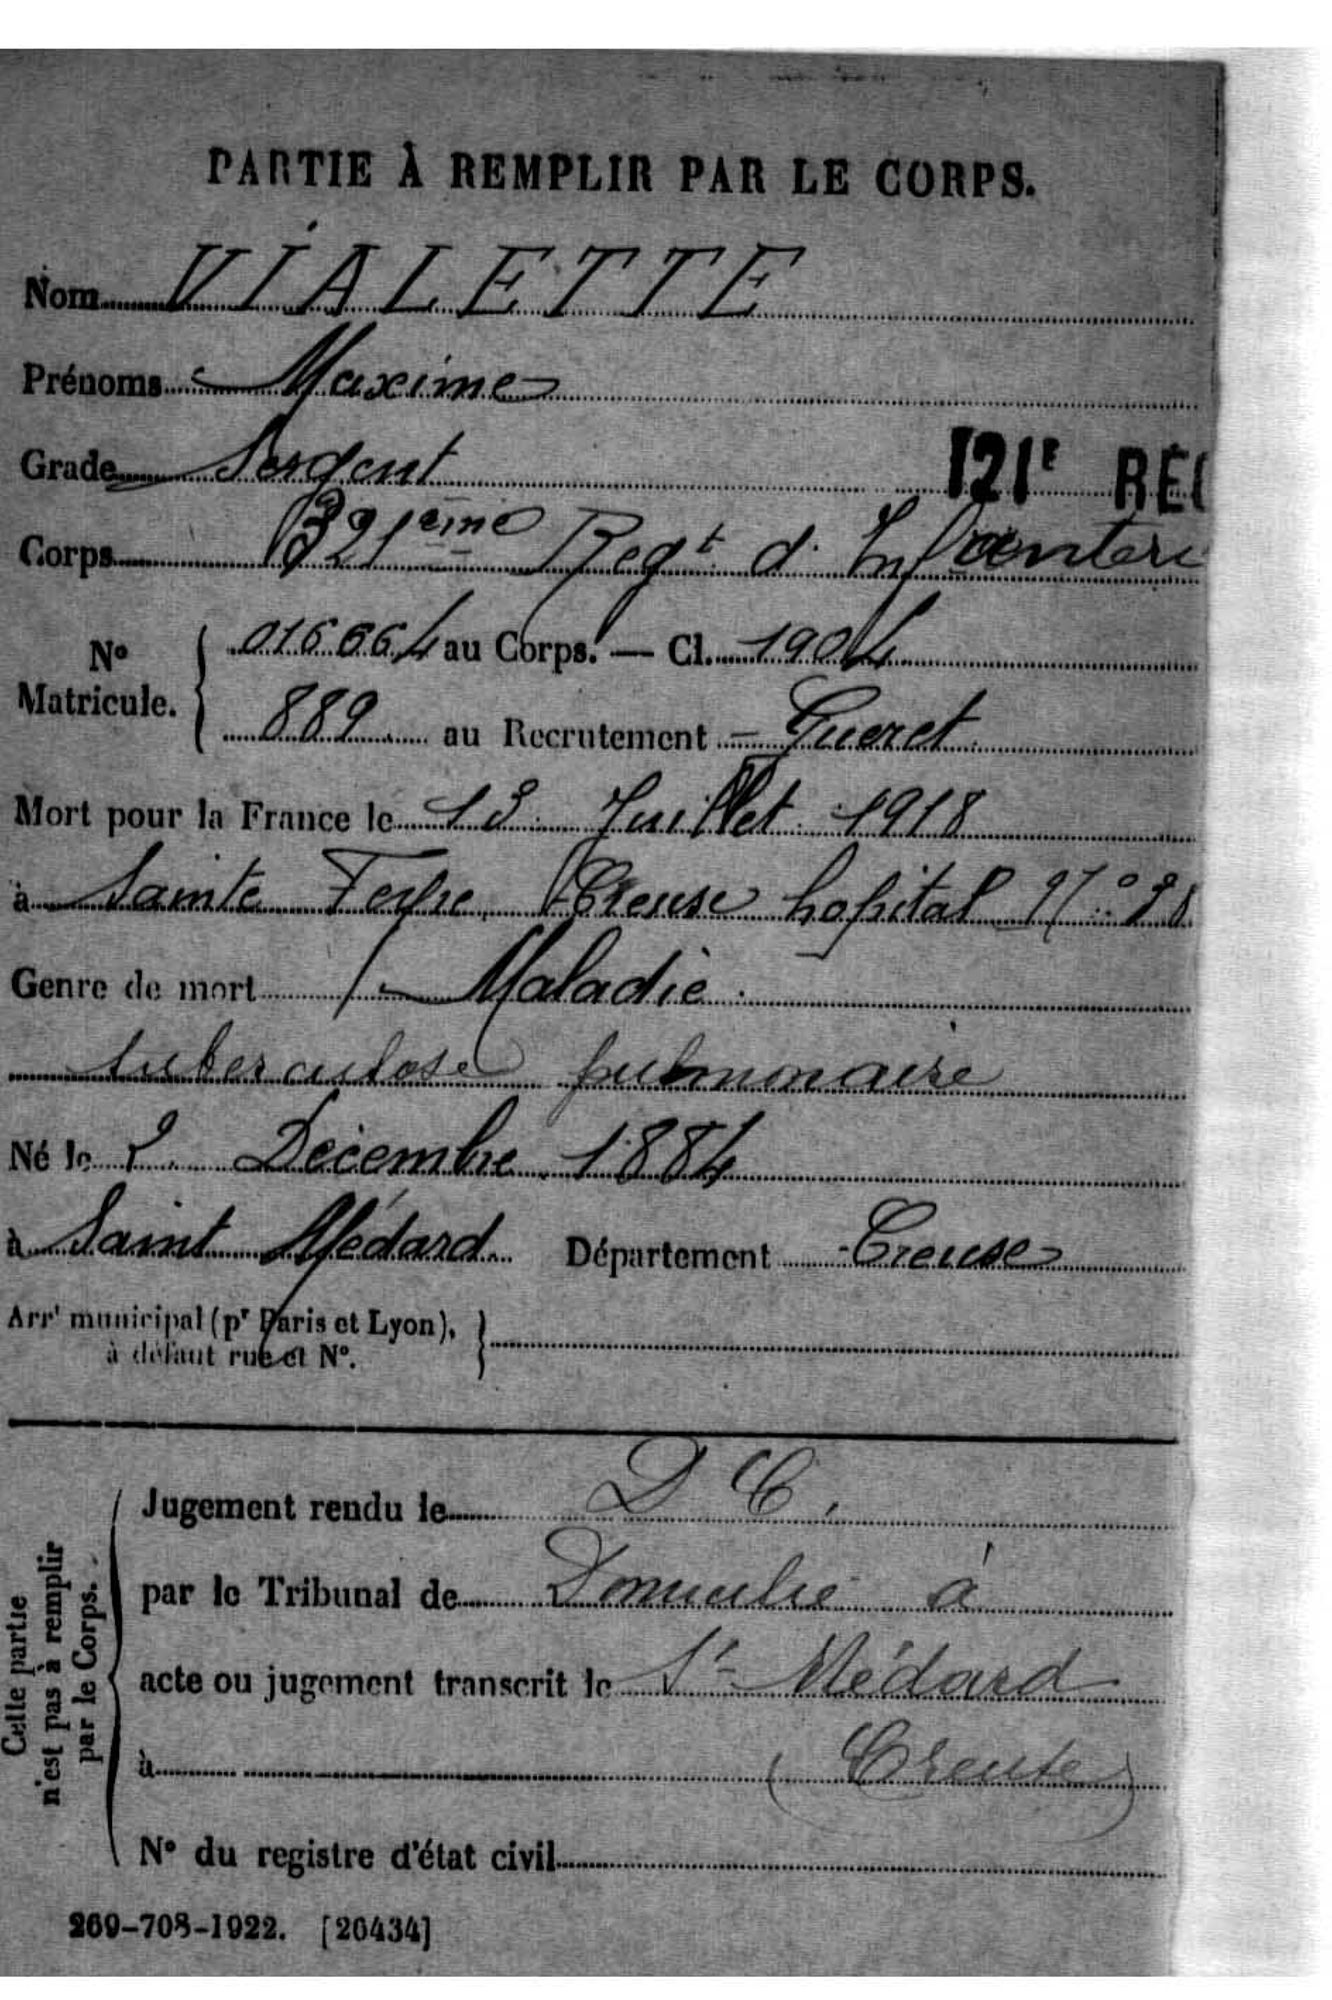 PARTIE À REMPLIR PAR LE CORPS.
Nom VIALETTE
Prénoms Maxime
Grade Sergent
121e RÉG
Corps 321ème Regt d'Infanterie
No Matricule. { 016664 au Corps. — Cl. 1904
889 au Recrutement - Gueret
Mort pour la France le 13 Juillet 1918
à Sainte Feyre Creuse hopital No
Genre de mort Maladie
tuberculose pulmonaire
Né le 2 Décembre 1884
à Saint Médard Département Creuse
Arrt municipal (pr Paris et Lyon), }
à défaut rue et No.
Cette partie n'est pas à remplir par le Corps.
Jugement rendu le D C.
par le Tribunal de Domicilié à
acte ou jugement transcrit le St Médard
à (Creuse)
No du registre d'état civil
269-708-1922. [26434]